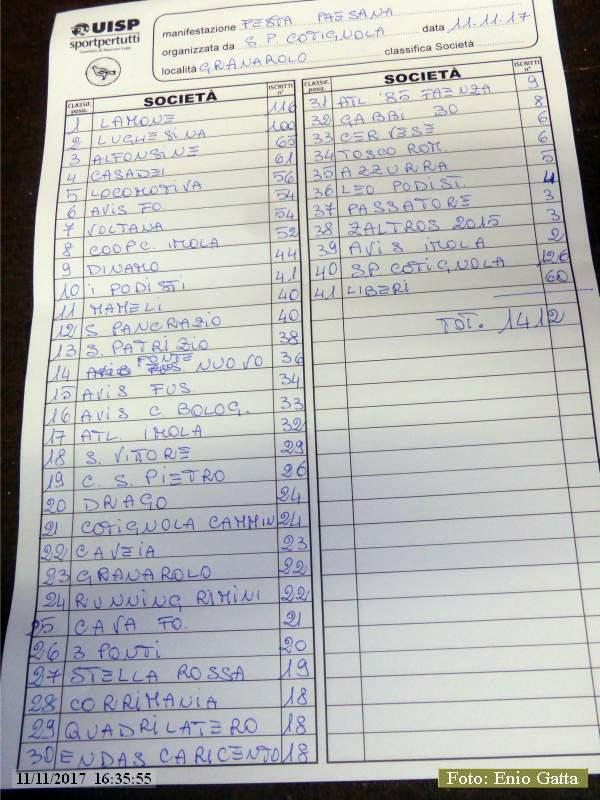 UISP
sportpertutti
manifestazione FESTA PAESANA
organizzata da S.P COTIGNOLA data 11.11.17
località GRANAROLO classifica Società
CLASSIF. posiz. SOCIETÀ ISCRITTI n°
1 LAMONE 116
2 LUGHESINA 100
3 ALFONSINE 65
4 CASADEI 61
5 LOCOMOTIVA 56
6 AVIS FO. 54
7 VOLTANA 54
8 COOP C. IMOLA 52
9 DINAMO 44
10 I PODISTI 41
11 MAMELI 40
12 S. PANCRAZIO 40
13 S. PATRIZIO 38
14 PONTE NUOVO 36
15 AVIS FUS 34
16 AVIS C. BOLOG. 33
17 ATL. IMOLA 32
18 S. VITTORE 29
19 C. S. PIETRO 26
20 DRAGO 24
21 COTIGNOLA CAMMIN 24
22 CAVEIA 23
23 GRANAROLO 22
24 RUNNING RIMINI 22
25 CAVA FO. 21
26 3 PONTI 20
27 STELLA ROSSA 19
28 CORRIMANIA 18
29 QUADRILATERO 18
30 ENDAS CARICENTO 18
CLASSIF. posiz. SOCIETÀ ISCRITTI n°
31 ATL '85 FAENZA 9
32 GABBI 30 8
33 CERVESE 6
34 TOSCO ROM. 6
35 AZZURRA 5
36 LEO PODIST. 4
37 PASSATORE 3
38 ZALTROS 2015 3
39 AVIS IMOLA 2
40 SP COTIGNOLA 126
41 LIBERI 60
TOT. 1412
11/11/2017 16:35:55
Foto: Enio Gatta